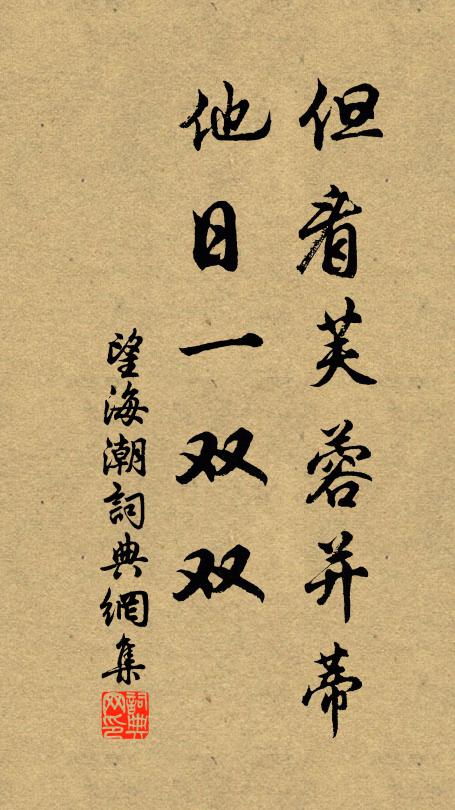 但看芙蓉并蒂
他日一双双
望海潮詞典網集
詞典
网印